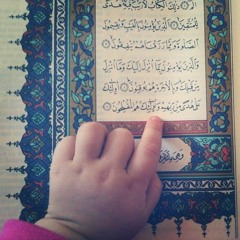 الٓمٓ ذَٰلِكَ ٱلْكِتَٰبُ لَا رَيْبَ ۛ فِيهِ ۛ هُدًى
لِّلْمُتَّقِينَ ٱلَّذِينَ يُؤْمِنُونَ بِٱلْغَيْبِ وَيُقِيمُونَ
ٱلصَّلَوٰةَ وَمِمَّا رَزَقْنَٰهُمْ يُنفِقُونَ
وَٱلَّذِينَ يُؤْمِنُونَ بِمَآ أُنزِلَ إِلَيْكَ وَمَآ أُنزِلَ
مِن قَبْلِكَ وَبِٱلْءَاخِرَةِ هُمْ يُوقِنُونَ أُو۟لَٰٓئِكَ
عَلَىٰ هُدًى مِّن رَّبِّهِمْ وَأُو۟لَٰٓئِكَ هُمُ ٱلْمُفْلِحُونَ